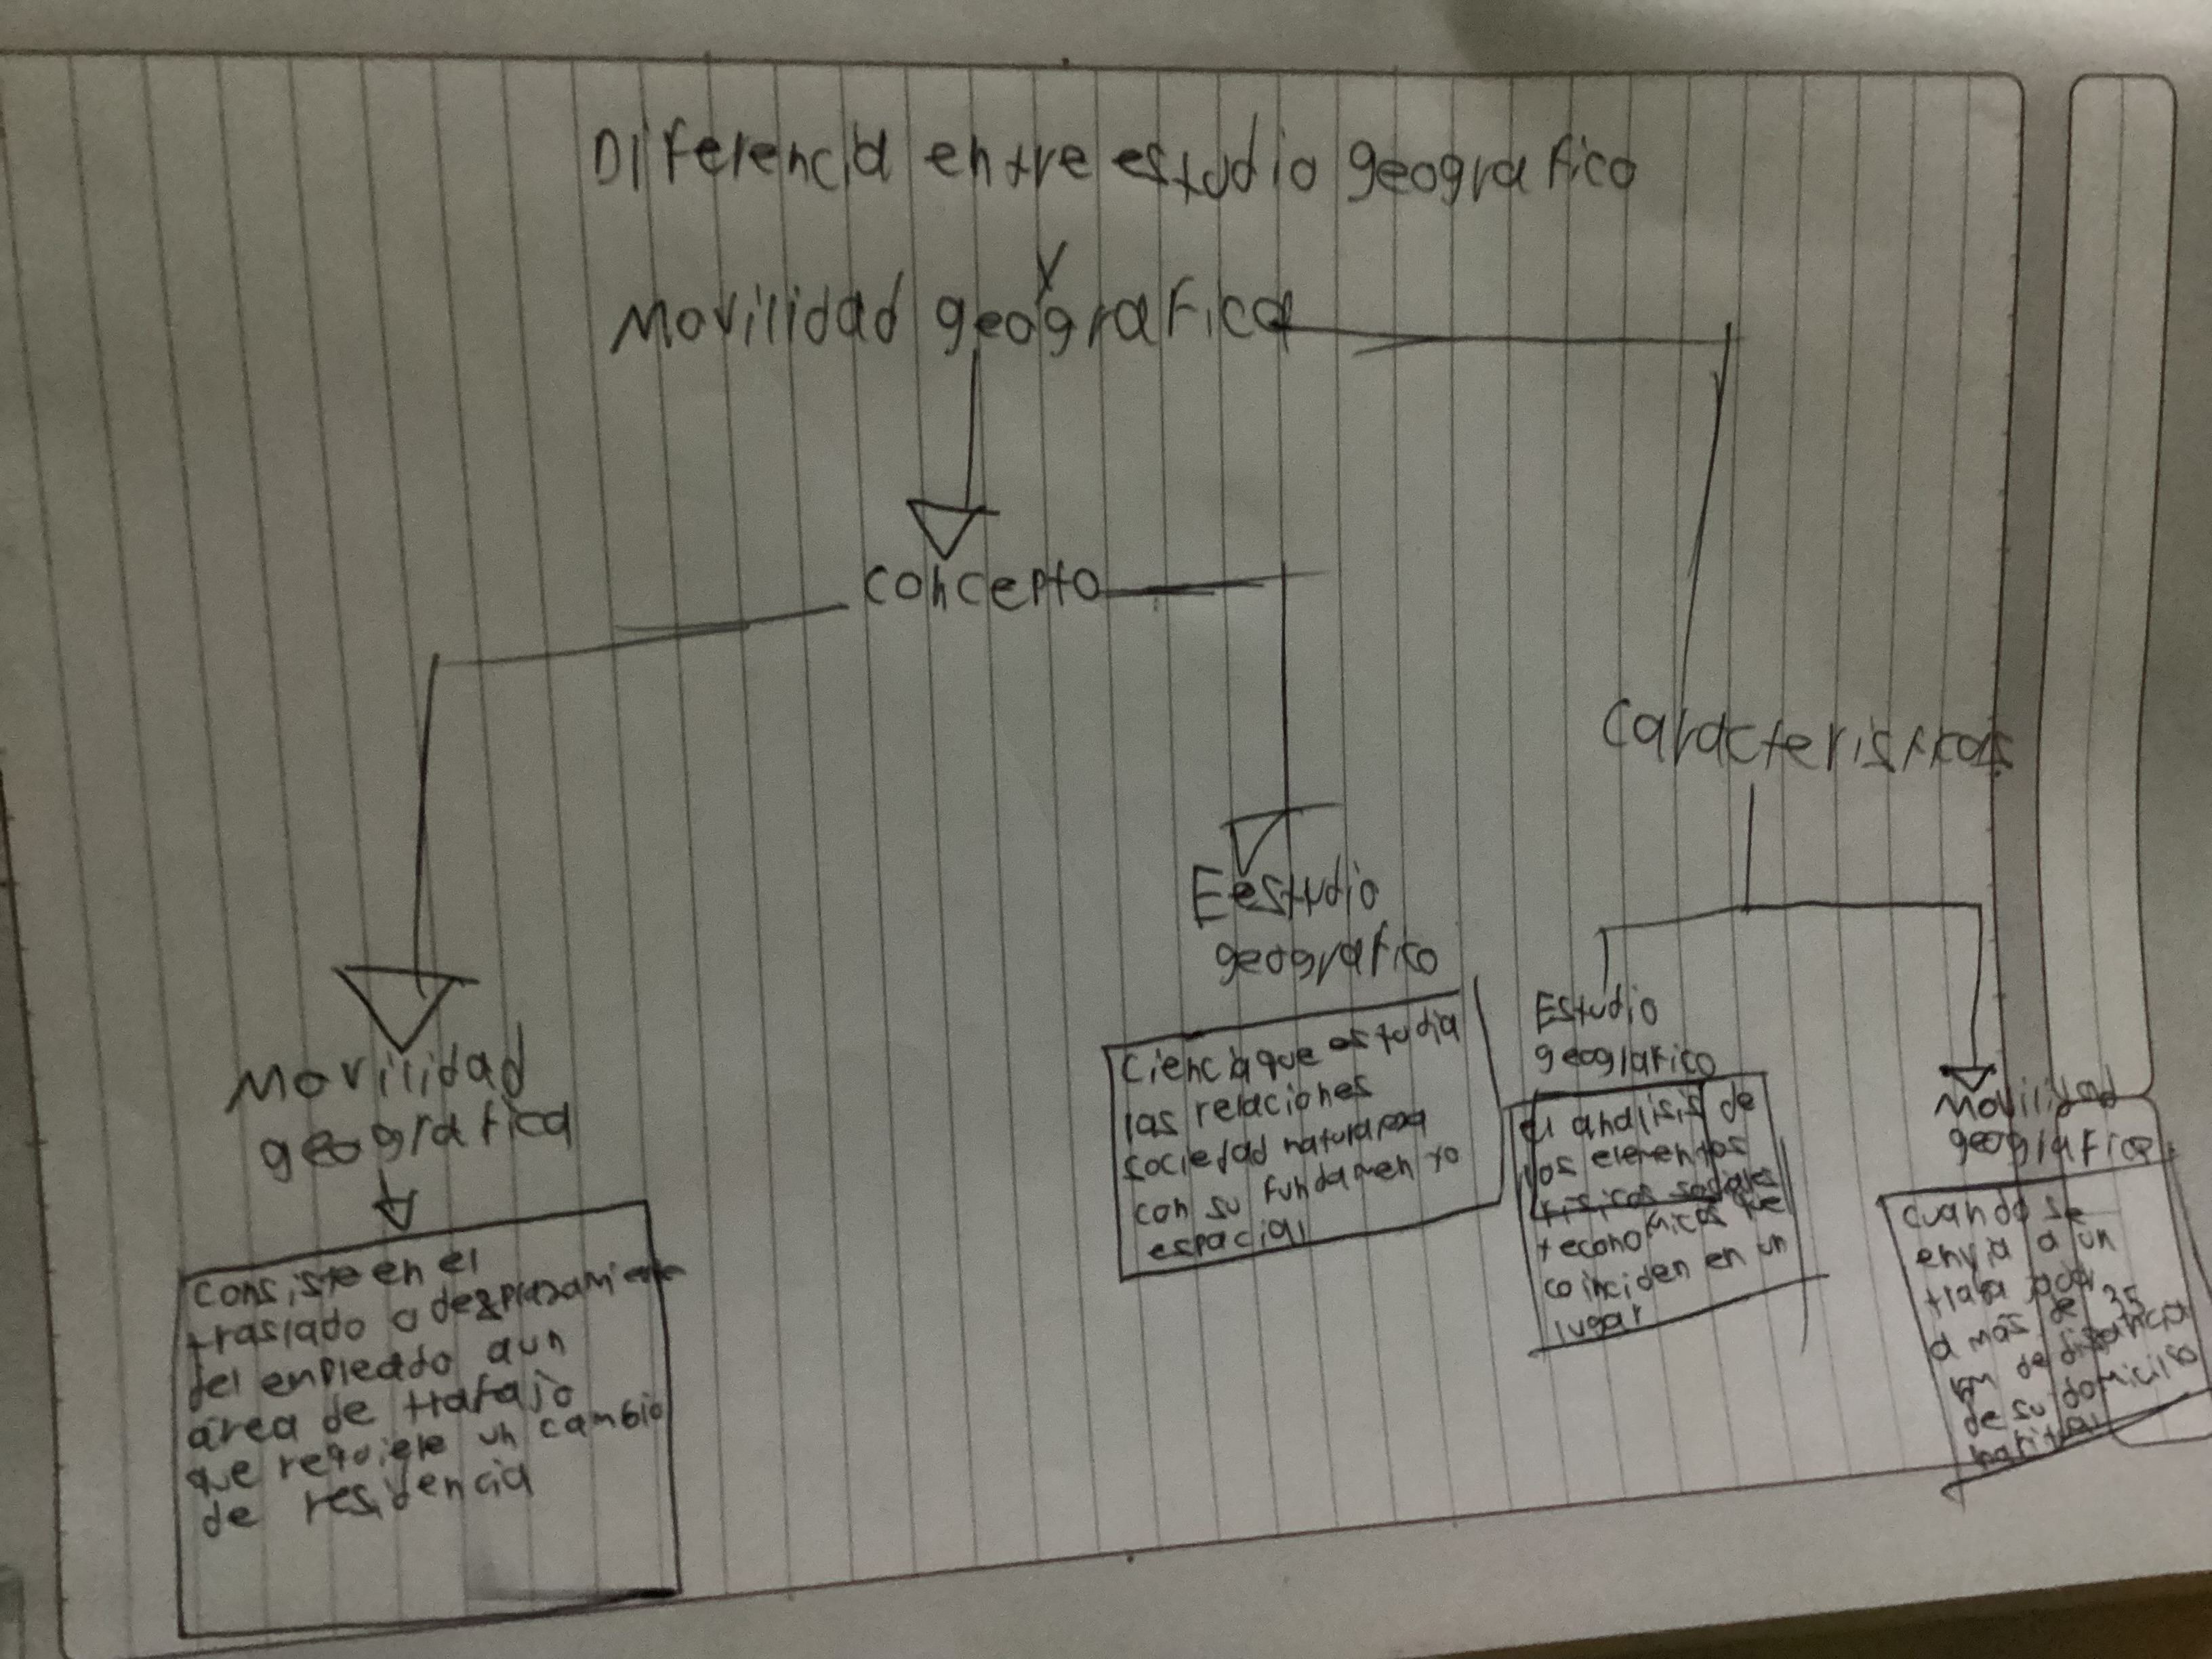 Diferencia entre estudio geografico
y
Movilidad geografica
concepto
caracteristicas
Movilidad
geografica
Consiste en el
traslado o desplazamiento
del enpleado aun
area de trafajo
que requiere un cambio
de residencia
Eestudio
geografico
Ciencia que estudia
las relaciones
sociedad naturaleza
con su fundamento
espacial
Estudio
geografico
el analisis de
los elementos
fisicos sociales
y economicos que
coinciden en un
lugar
Movilidad
geografica
cuando se
envia a un
a mas de 35
km de distancia
de su domicilio